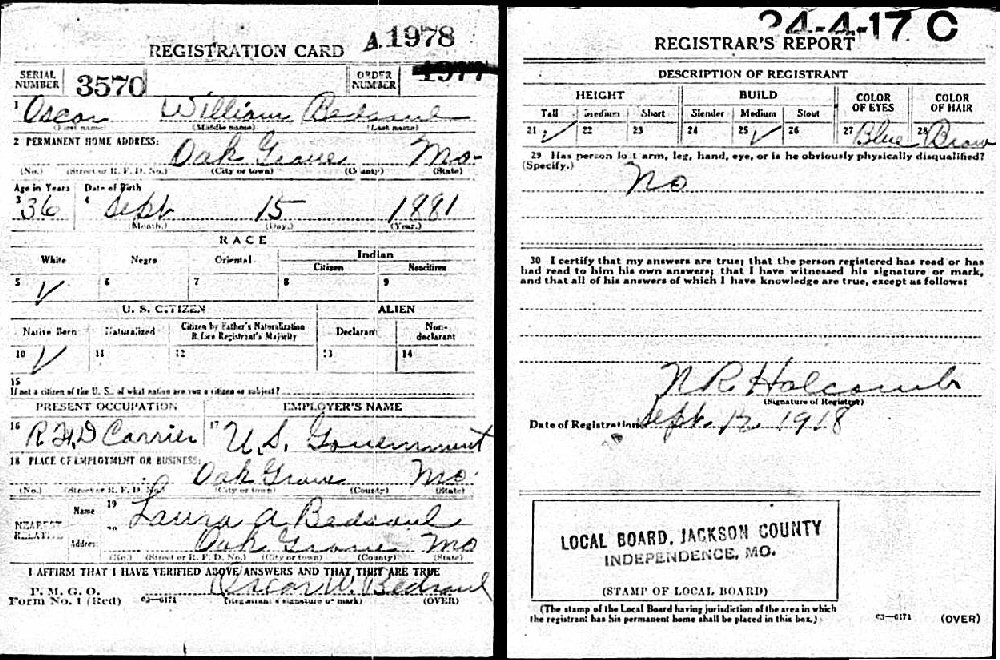 REGISTRATION CARD A 1978
SERIAL NUMBER 3570 ORDER NUMBER 1977
1 Oscar William Bedsaul
(First name) (Middle name) (Last name)
2 PERMANENT HOME ADDRESS:
Oak Grove Mo.
(No.) (Street or R. F. D. No.) (City or town) (County) (State)
Age in Years Date of Birth
3 36 4 Sept 15 1881
(Month.) (Day.) (Year.)
RACE
White Negro Oriental Indian
Citizen Noncitizen
5 ✓ 6 7 8 9
U. S. CITIZEN ALIEN
Native Born Naturalized Citizen by Father's Naturalization Before Registrant's Majority Declarant Non-declarant
10 ✓ 11 12 13 14
15
If not a citizen of the U. S., of what nation are you a citizen or subject?
PRESENT OCCUPATION EMPLOYER'S NAME
16 R F D Carrier 17 U. S. Government
18 PLACE OF EMPLOYMENT OR BUSINESS:
Oak Grove Mo.
(No.) (Street or R. F. D. No.) (City or town) (County) (State)
NEAREST RELATIVE
Name 19 Laura A Bedsaul
Address 20 Oak Grove Mo
(No.) (Street or R. F. D. No.) (City or town) (County) (State)
I AFFIRM THAT I HAVE VERIFIED ABOVE ANSWERS AND THAT THEY ARE TRUE
P. M. G. O.
Form No. 1 (Red) 03—6171 Oscar W. Bedsaul
(Registrant's signature or mark) (OVER)
24-4-17 C
REGISTRAR'S REPORT
DESCRIPTION OF REGISTRANT
HEIGHT BUILD COLOR OF EYES COLOR OF HAIR
Tall Medium Short Slender Medium Stout
21 ✓ 22 23 24 25 ✓ 26 27 Blue 28 Brow
29 Has person lost arm, leg, hand, eye, or is he obviously physically disqualified?
(Specify.) No
30 I certify that my answers are true; that the person registered has read or has
had read to him his own answers; that I have witnessed his signature or mark,
and that all of his answers of which I have knowledge are true, except as follows:
N R Holcomb
(Signature of Registrar)
Date of Registration Sept. 12, 1918
LOCAL BOARD, JACKSON COUNTY
INDEPENDENCE, MO.
(STAMP OF LOCAL BOARD)
(The stamp of the Local Board having jurisdiction of the area in which
the registrant has his permanent home shall be placed in this box.)
03—6171 (OVER)